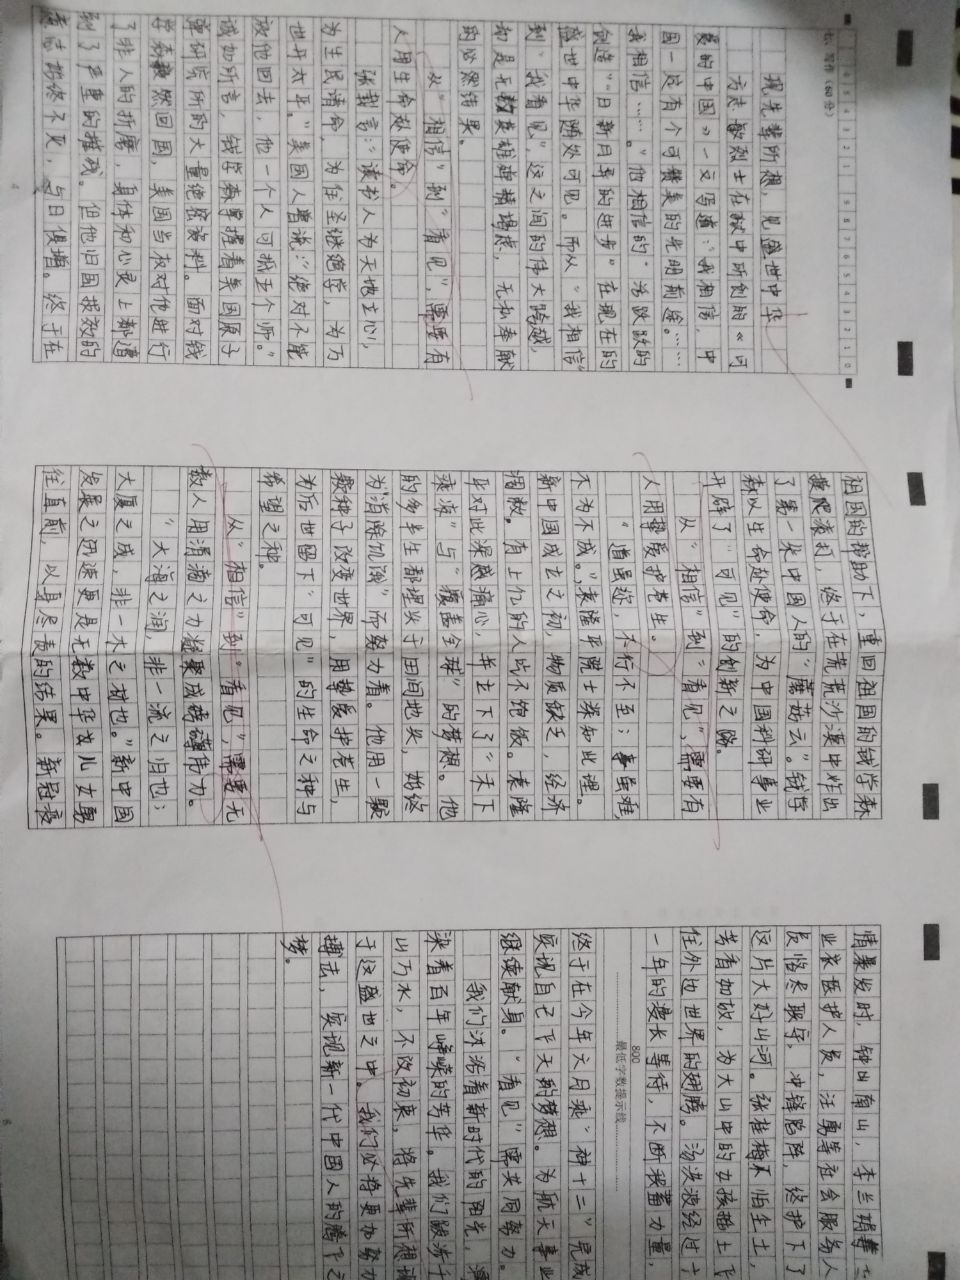 七、写作(60分)
现先辈所想，见盛世中华
方志敏烈士在狱中所创的《可
爱的中国》一文写道："我相信，中
国一定有个可赞美的光明前途。……
我相信……。"他相信的"活跃跃的
创造""日新月异的进步"在现在的
盛世中华随处可见。而从"我相信"
到"我看见"，这之间的伟大跨越，
却是无数英雄殚精竭虑，无私奉献
的必然结果。
从"相信"到"看见"，需要有
人用生命赴使命。
张载言："读书人为天地立心，
为生民请命，为往圣继绝学，为万
世开太平。"美国人曾说："绝对不能
放他回去，他一个人可抵五个师。"
诚如所言，钱学森掌握着美国原子
弹研究所的大量绝密资料。面对钱
学森毅然回国，美国当权对他进行
了非人的折磨，身体和心灵上都遭
到了严重的摧残。但他归国报效的
意志始终不灭，与日俱增。终于在
祖国的帮助下，重回祖国的钱学森
摸爬滚打，终于在荒荒沙漠中炸出
了第一朵中国人的"蘑菇云"。钱学
森以生命赴使命，为中国科研事业
开辟了"可见"的创新之路。
从"相信"到"看见"，需要有
人用挚爱护苍生。
"道虽迩，不行不至；事虽难，
不为不成。"袁隆平院士深知此理。
新中国成立之初，物质缺乏，经济
凋敝。有上亿的人吃不饱饭。袁隆
平对此深感痛心，并立下了"禾下
乘凉"与"覆盖全球"的梦想。他
的多半生都埋头于田间地头，始终
为"消除饥饿"而努力着。他用一颗
颗种子改变世界，用挚爱护苍生，
为后世留下"可见"的生命之种与
希望之种。
从"相信"到"看见"，需要无
数人用涓滴之力凝聚成磅礴伟力。
"大海之润，非一流之归也；
大厦之成，非一木之材也。"新中国
发展之迅速更是无数中华女儿女勇
往直前，以身尽责的结果。新冠疫
情暴发时，钟出南山，李兰娟等
业家医护人员，汪勇等社会服务人
员恪尽职守，冲锋陷阵，终护下了
这片大好山河。张桂梅不怕生土，
苦着加故，为大山中的女孩插上飞
往外边世界的翅膀。汤洪波经过
一年的漫长等待，不断积蓄力量，
800
最低字数提示线
终于在今年六月乘"神十二"完成
实现自己飞天的梦想。为航天事业
继续献身。"看见"需共同努力。
我们沐浴着新时代的阳光，
染着百年峥嵘的芳华。我们跋涉千
山万水，不改初衷，将先辈所想
于这盛世之中。我们必将更加努力
搏击，实现新一代中国人的腾飞之
梦。